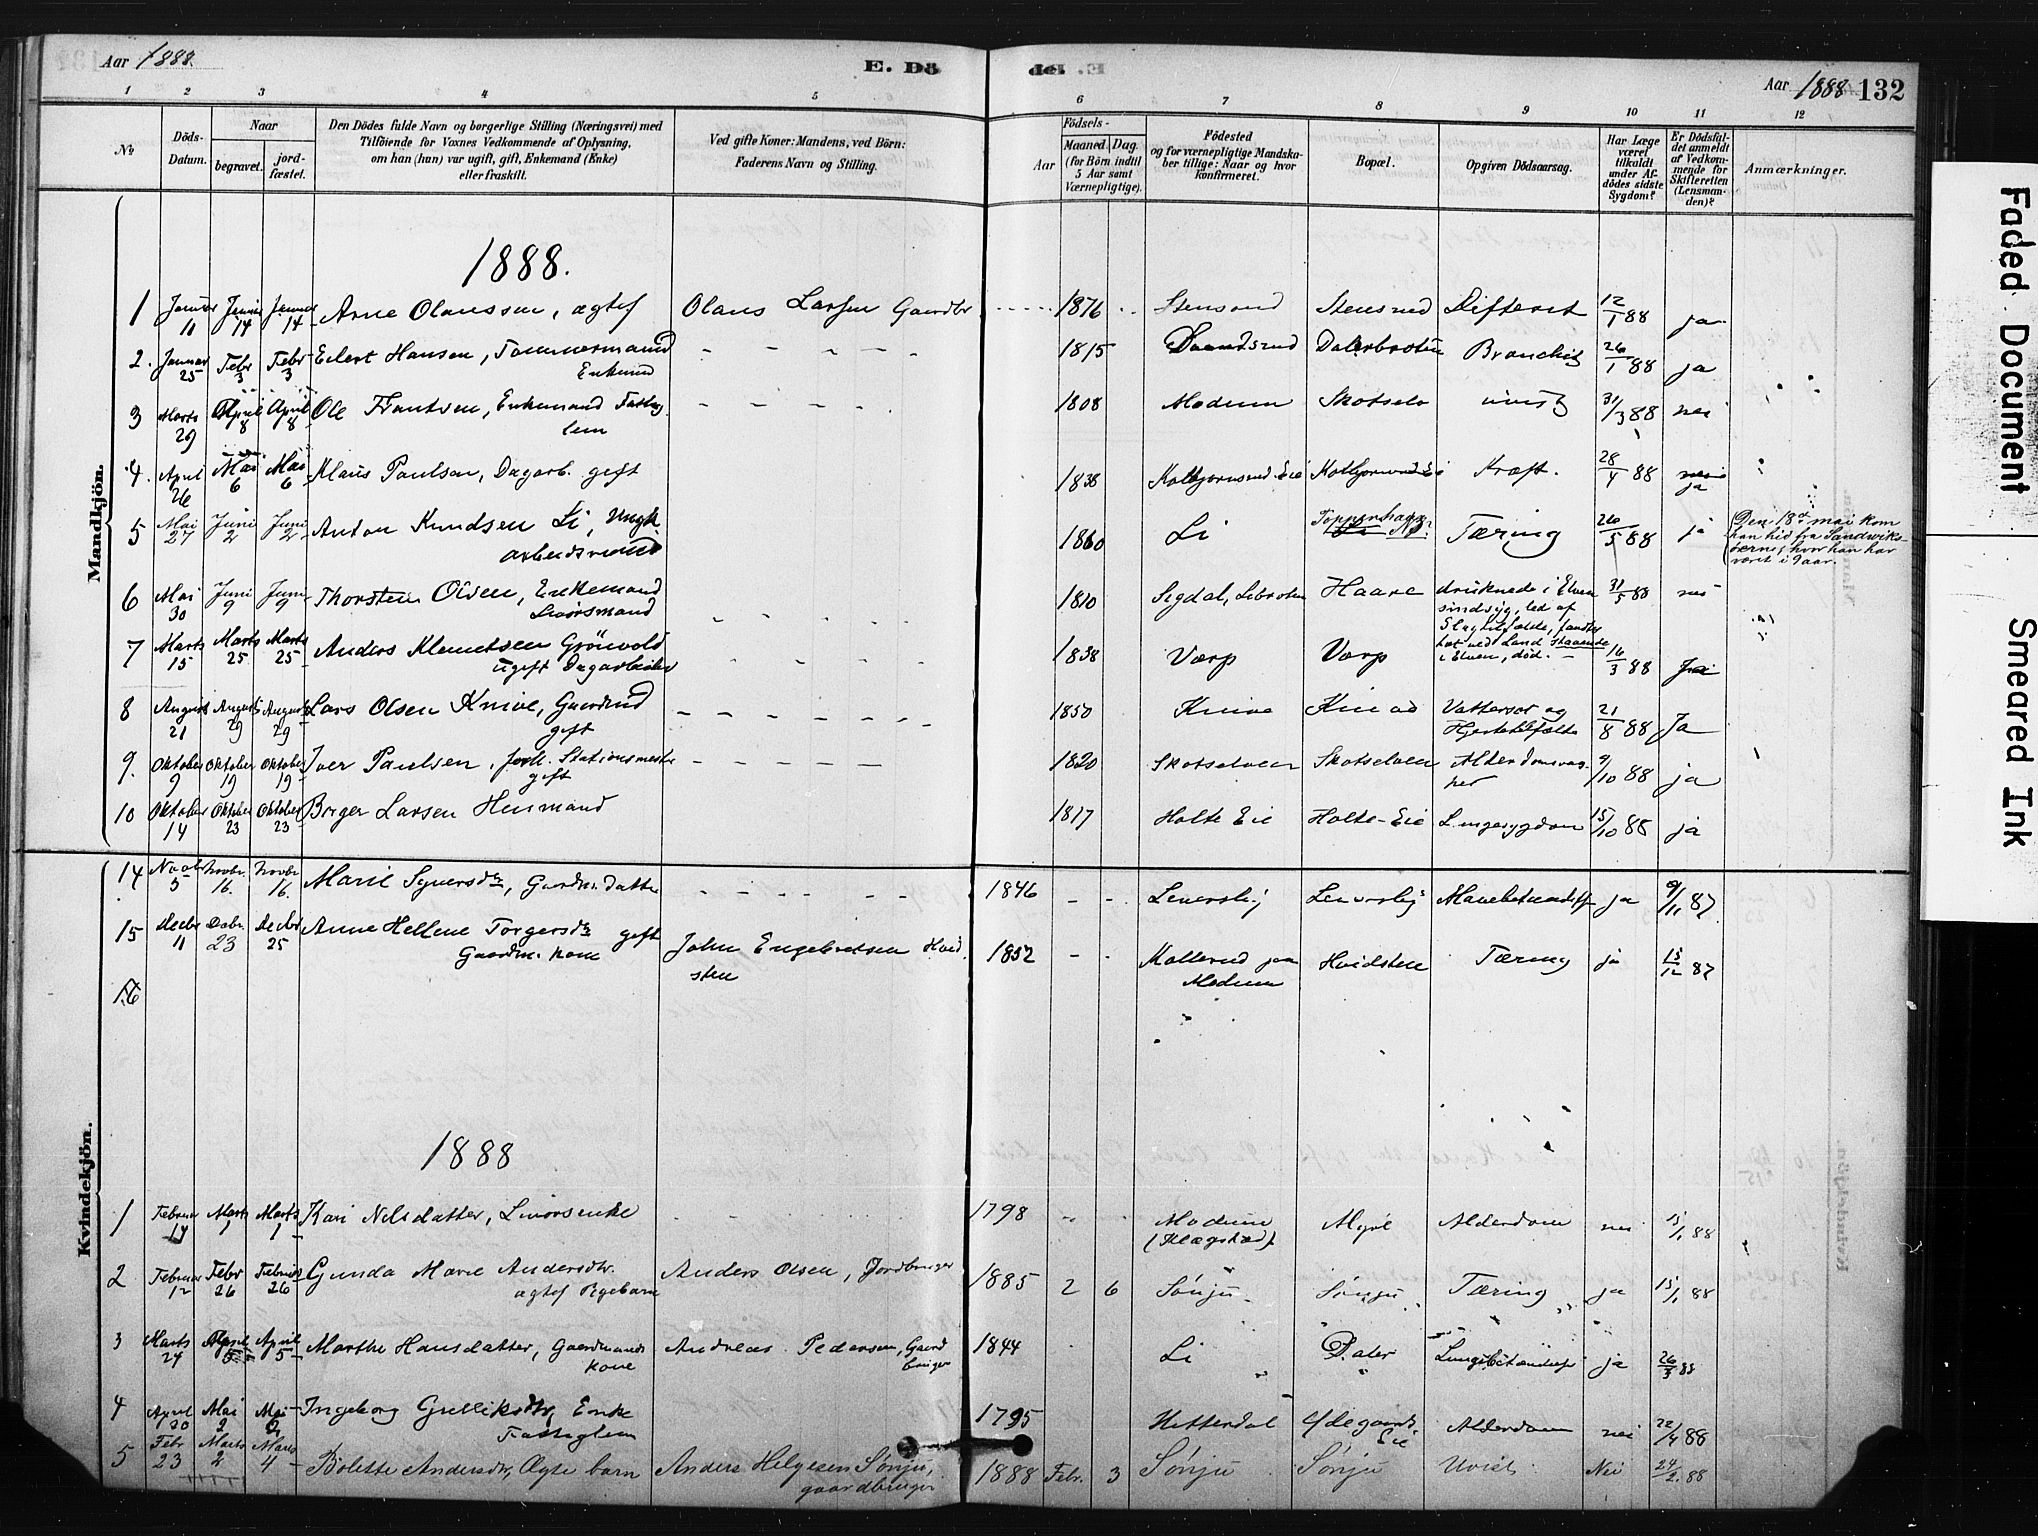 Aar 1888.
E. Dö
de. E.
Aar 1888 132
1 2 3 4 5 6 7 8 9 10 11 12
No
Döds-Datum.
Naar
begravet.
jord-fæstet.
Den Dödes fulde Navn og borgerlige Stilling (Næringsvei) med
Tilföiende for Voxnes Vedkommende af Oplysning,
om han (hun) var ugift, gift, Enkemand (Enke)
eller fraskilt.
Ved gifte Koner: Mandens, ved Börn:
Faderens Navn og Stilling.
Födsels-
Aar
Maaned. Dag.
(for Börn indtil
5 Aar samt
Værnepligtige).
Födested
og for værnepligtige Mandska-
ber tillige: Naar og hvor
konfirmeret.
Bopæl.
Opgiven Dödsaarsag.
Har Læge
været
tilkaldt
under Af-
dödes sidste
Sygdom?
Er Dödsfal-
det anmeldt
af Vedkom-
mende for
Skifteretten
(Lensman-
den)?
Anmærkninger.
Mandkjön.
1888.
1 Januar 11 Januar 14 Januar 14 Arne Olaussen, ægtef Olaus Larsen Gaardbr 1876 Stensrud Stensrud Difterit 12/1 88 ja
2. Januar 25 Febr 3 Febr 3 Eilert Hansen, Tømmermand
Enkmd 1815 Daler­braaten Bronchit 26/1 88 ja
3 Marts 29 April 8 April 8 Ole Frantsen, Enkemand Fattig-
lem 1808 Modum Skotselv uvist 31/3 88 nei
4. April 26 Mai 6 Mai 6 Klaus Paulsen, Dagarb. gift 1838 Kolbjornsrud Eie Kolbjornsrud Eie Kræft. 28/4 88 ja
5 Mai 27 Juni 2 Juni 2 Anton Knudsen Li, Ungk
arbeidsmand 1860 Li Toppenhaug Tæring 26/5 88 ja
Den 18de mai kom
han hid fra Sandviks-
ørerne, hvor han har
været i 2 aar.
6 Mai 30 Juni 9 Juni 9 Thorsten Olsen, Enkemand
Inderstmand 1810 Sigdal, Haare druknede i Elven
sindsyg, led af
Slagtilfælde, fandtes
tæt ved Land staaende
i Elven, död. 31/5 88 nei
7 Marts 15 Marts 25 Marts 25 Anders Klemetsen Grönvold
ugift Dagarbeider 1838 Værp Værp 16/3 88 Ja
8 August 21 August 29 August 29 Lars Olsen Knive, Gaardmd
gift 1850 Knive Knive Vattersot og
Hjertetilfælde 21/8 88 Ja
9. Oktober 9 Oktober 19 Oktober 19 Iver Paulsen, forh. Stationsmester
gift 1820 Skotselven Skotselven Alderdomssvag-
hed 9/10 88 ja
10 Oktober 14 Oktober 23 Oktober 23 Børger Larsen Husmand 1817 Holte Eie Holte-Eie Lungesygdom 15/10 88 ja
Kvindekjön.
14 Novbr 5 Novbr. 16. Novbr 16. Marie Syversdtr, Gaardm. datter 1846 Leverslej Leverslej ja 9/11 87
15 Decbr 11 Decbr. 23 Decbr 25 Anne Hellene Torgersdtr gift
Gaardm. kone John Engebretsen Hvid-
sten 1852 Kollerud paa
Modum Hvidsten Tæring ja 15/12 87
16
1888
1 Februar 14 Marts 1 Marts 1 Kari Nilsdatter, 1798 Modum
Myre Alderdom nei 15/1 88
2 Februar 12 Febr 26 Februar 26 Gunda Marie Andersdtr.
ægtef Pigebarn Anders Olsen, Jordbruger 1885 2 6 Sönju Sönju Tæring ja 15/1 88
3 Marts 24 April 5 April 5 Marthe Hansdatter, Gaardmands
kone Andreas Pedersen, Gaard-
bruger 1844 Li Daler Lungebetændelse ja 26/3 88
4 April 20 Mai 2 Mai 2 Ingeborg Gulliksdtr, Enke
Fattiglem 1795 Hitterdal Ødegaards
Eie Alderdom nei 22/4 88
5 Febr 23 Marts 2 Marts 4 Bolette Andersdtr, Ægte barn Anders Helgesen Sönju,
gaardbruger 1888 Febr. 3 Sönju Sönju Uvist. Nei 24/2 88
Faded Document
Smeared Ink